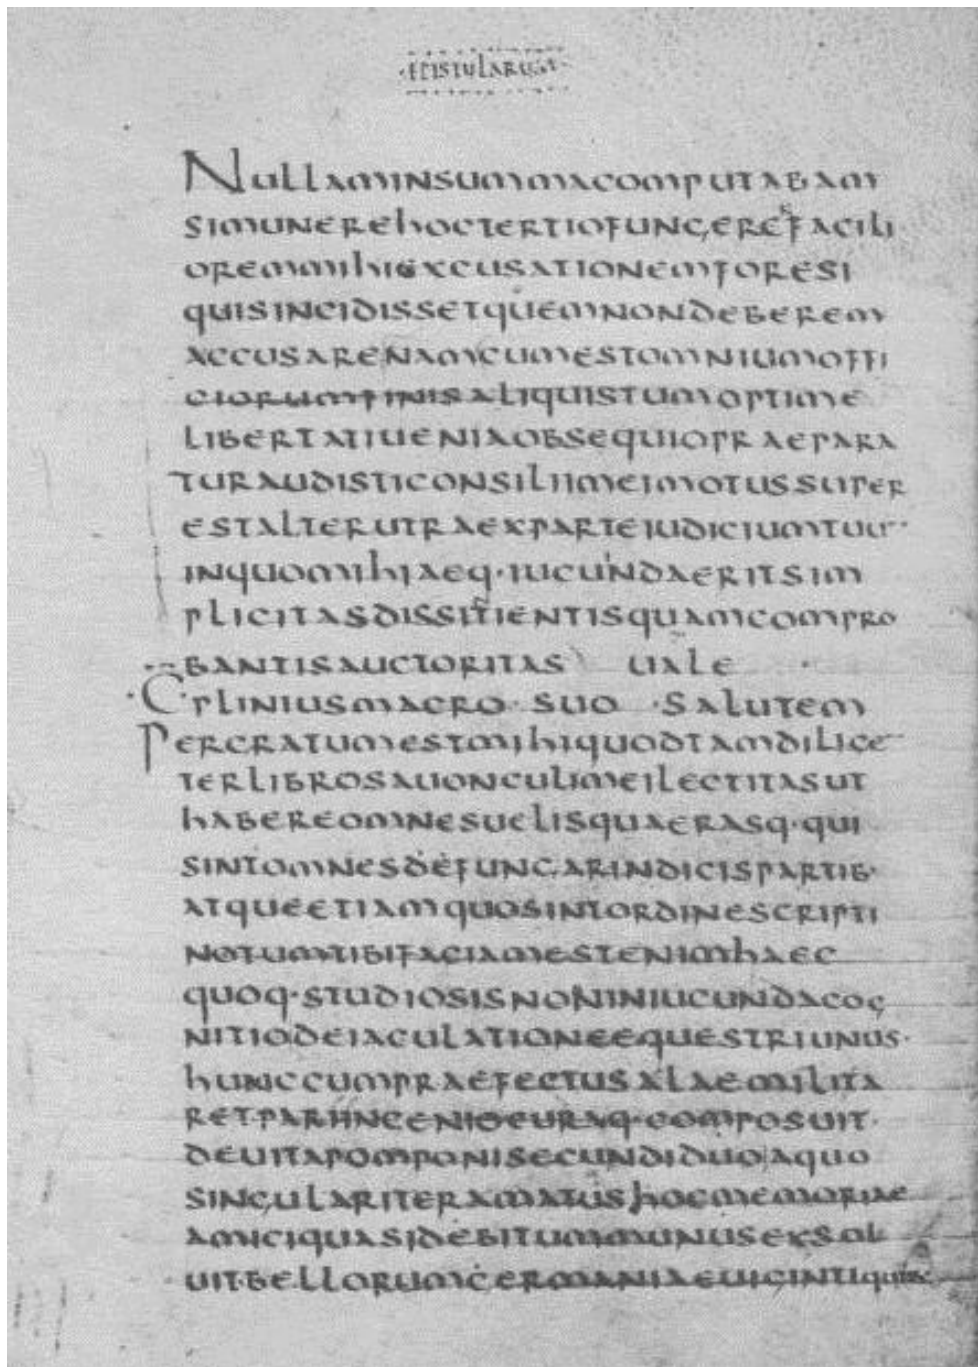 ·EPISTULARUM·
NULLAMINSUMMACOMPUTABAM
SIMUNEREHOCTERTIOFUNGERERFACILI
OREMMIHIEXCUSATIONEMFORESI
QUISINCIDISSETQUEMNONDEBEREM
ACCUSARENAMCUMESTOMNIUMOFFI
CIORUMFINISALIQUISTUMOPTIME
LIBERTATIUENIAOBSEQUIOPRAEPARA
TURAUDISTICONSILIIMEIMOTUSSUPER
ESTALTERUTRAEXPARTEIUDICIUMTUU·
INQUOMIHIAEQ·IUCUNDAERITSIM
PLICITASDISSITIENTISQUAMCOMPRO
BANTISAUCTORITAS UALE
·C·PLINIUSMACRO·SUO·SALUTEM
PERGRATUMESTMIHIQUODTAMDILIGE
TERLIBROSAUONCULIMEILECTITASUT
HABEREOMNESUELISQUAERASQ·QUI
SINTOMNESDEFUNGARINDICISPARTIB·
ATQUEETIAMQUOSINTORDINESCRIPTI
NOTUMTIBIFACIAMESTENIMHAEC
QUOQ·STUDIOSISNONINIUCUNDACOG
NITIODEIACULATIONEEQUESTRIUNUS·
HUNCCUMPRAEFECTUSALAEMILITA
RETPARIINGENIOCURAQ·COMPOSUIT·
DEUITAPOMPONISECUNDIDUOAQUO
SINGULARITERAMATUSHOCMEMORIAE
AMICIQUASIDEBITUMMUNUSEXSOL
UITBELLORUMGERMANIAEUIGINTIQUIBC